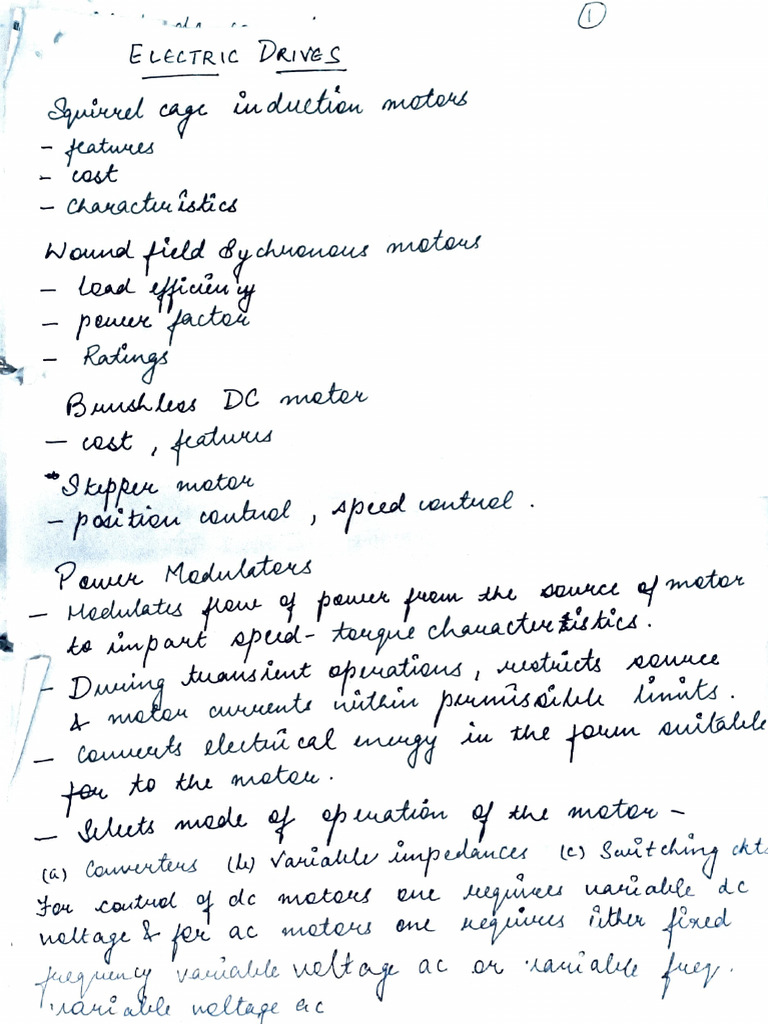 1
ELECTRIC DRIVES
Squirrel cage induction motors
- features
- cost
- characteristics
Wound field Sychronous motors
- Load efficiency
- power factor
- Ratings
Brushless DC motor
- cost , features
Stepper motor
- position control , speed control .
Power Modulators
- Modulates flow of power from the source of motor
to impart speed-torque characteristics.
- During transient operations, restricts source
& motor currents within permissible limits.
- Converts electrical energy in the form suitable
for to the motor.
- Selects mode of operation of the motor -
(a) Converters (b) Variable impedances (c) Switching ckt
For control of dc motors one requires variable dc
voltage & for ac motors one requires either fixed
frequency variable voltage ac or variable freq.
variable voltage ac